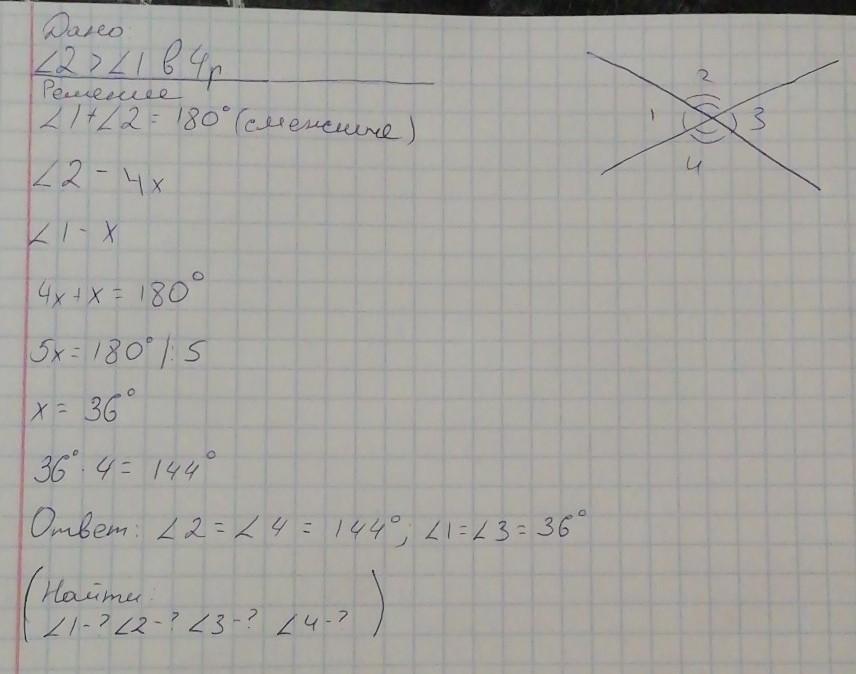 Дано
∠2 > ∠1 в 4р
Решение
∠1 + ∠2 = 180° (смежные)
∠2 - 4x
∠1 - x
4x + x = 180°
5x = 180° |: 5
x = 36°
36° · 4 = 144°
Ответ: ∠2 = ∠4 = 144°; ∠1 = ∠3 = 36°
(Найти:
∠1 - ? ∠2 - ? ∠3 - ? ∠4 - ?)
2
1
3
4